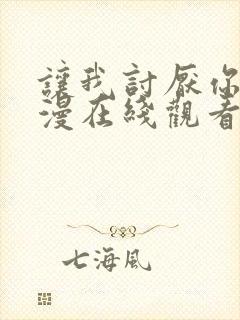 讓我討厭你
漫在綫觀看
七海風